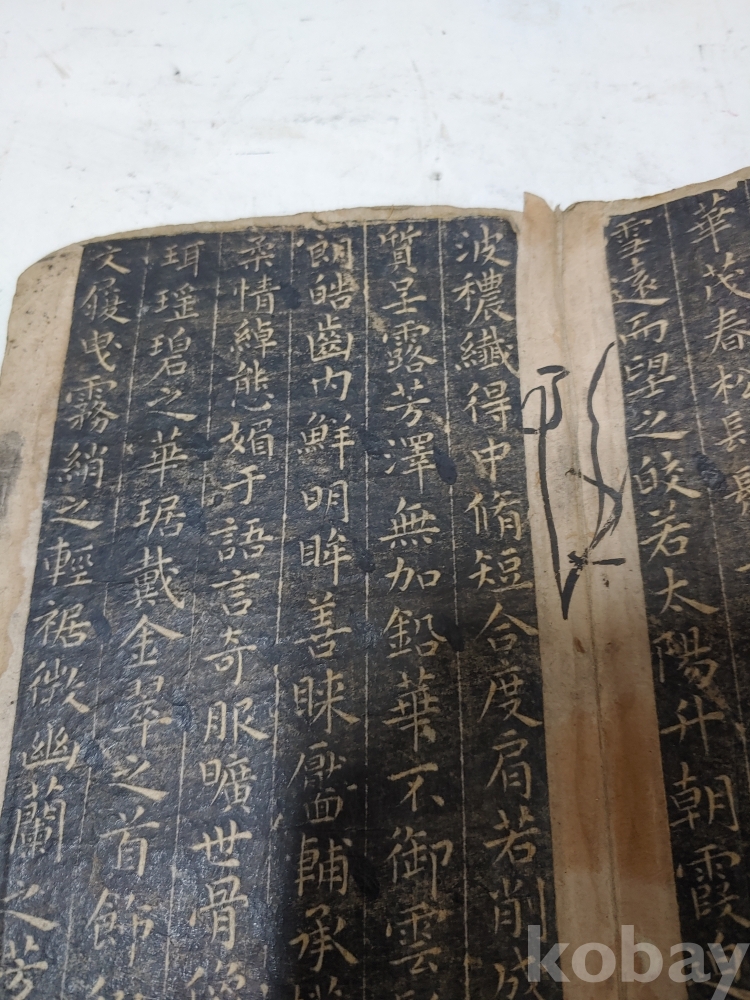 華茂春松
雪遠而望之皎若太陽升朝霞
波穠纖得中脩短合度肩若削成
質呈露芳澤無加鉛華不御雲
朗皓齒内鮮明眸善睞靨輔承
柔情綽態媚于語言奇服曠世骨像
珥瑤碧之華琚戴金翠之首飾
文履曳霧綃之輕裾微幽蘭之芳
kobay